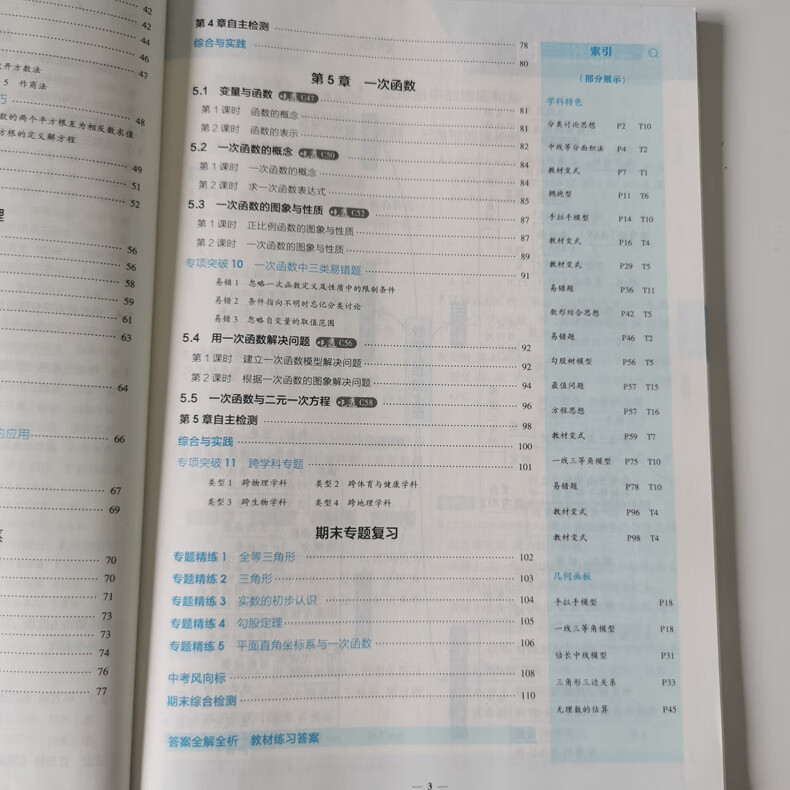 42
42
44
46
47
开方数法
5 竹商法
48
数的两个平方根互为相反数求值
方根的定义解方程
49
51
52
理
56
56
58
59
61
63
64
的应用
66
67
69
70
70
71
73
73
74
76
77
第4章自主检测 78
综合与实践 80
第5章 一次函数
5.1 变量与函数 C47 81
第1课时 函数的概念 81
第2课时 函数的表示 82
5.2 一次函数的概念 C50 84
第1课时 一次函数的概念 84
第2课时 求一次函数表达式 85
5.3 一次函数的图象与性质 C52 87
第1课时 正比例函数的图象与性质 87
第2课时 一次函数的图象与性质 89
专项突破10 一次函数中三类易错题 91
易错1 忽略一次函数定义及性质中的限制条件
易错2 条件指向不明时忘记分类讨论
易错3 忽略自变量的取值范围
5.4 用一次函数解决问题 C56 92
第1课时 建立一次函数模型解决问题 92
第2课时 根据一次函数的图象解决问题 94
5.5 一次函数与二元一次方程 C58 96
第5章自主检测 98
综合与实践 100
专项突破11 跨学科专题 101
类型1 跨物理学科 类型2 跨体育与健康学科
类型3 跨生物学科 类型4 跨地理学科
期末专题复习
专题精练1 全等三角形 102
专题精练2 三角形 103
专题精练3 实数的初步认识 104
专题精练4 勾股定理 105
专题精练5 平面直角坐标系与一次函数 106
中考风向标 108
期末综合检测 110
答案全解全析 教材练习答案
— 3 —
索引
（部分展示）
学科特色
分类讨论思想 P2 T10
中线等分面积法 P4 T2
教材变式 P7 T1
拥抱型 P11 T6
手拉手模型 P14 T10
教材变式 P16 T4
教材变式 P29 T5
易错题 P36 T11
数形结合思想 P42 T5
易错题 P46 T2
勾股树模型 P56 T5
最值问题 P57 T15
方程思想 P57 T16
教材变式 P59 T7
一线三等角模型 P75 T10
易错题 P78 T10
教材变式 P96 T4
教材变式 P98 T4
几何画板
手拉手模型 P18
一线三等角模型 P18
倍长中线模型 P31
三角形三边关系 P33
无理数的估算 P45